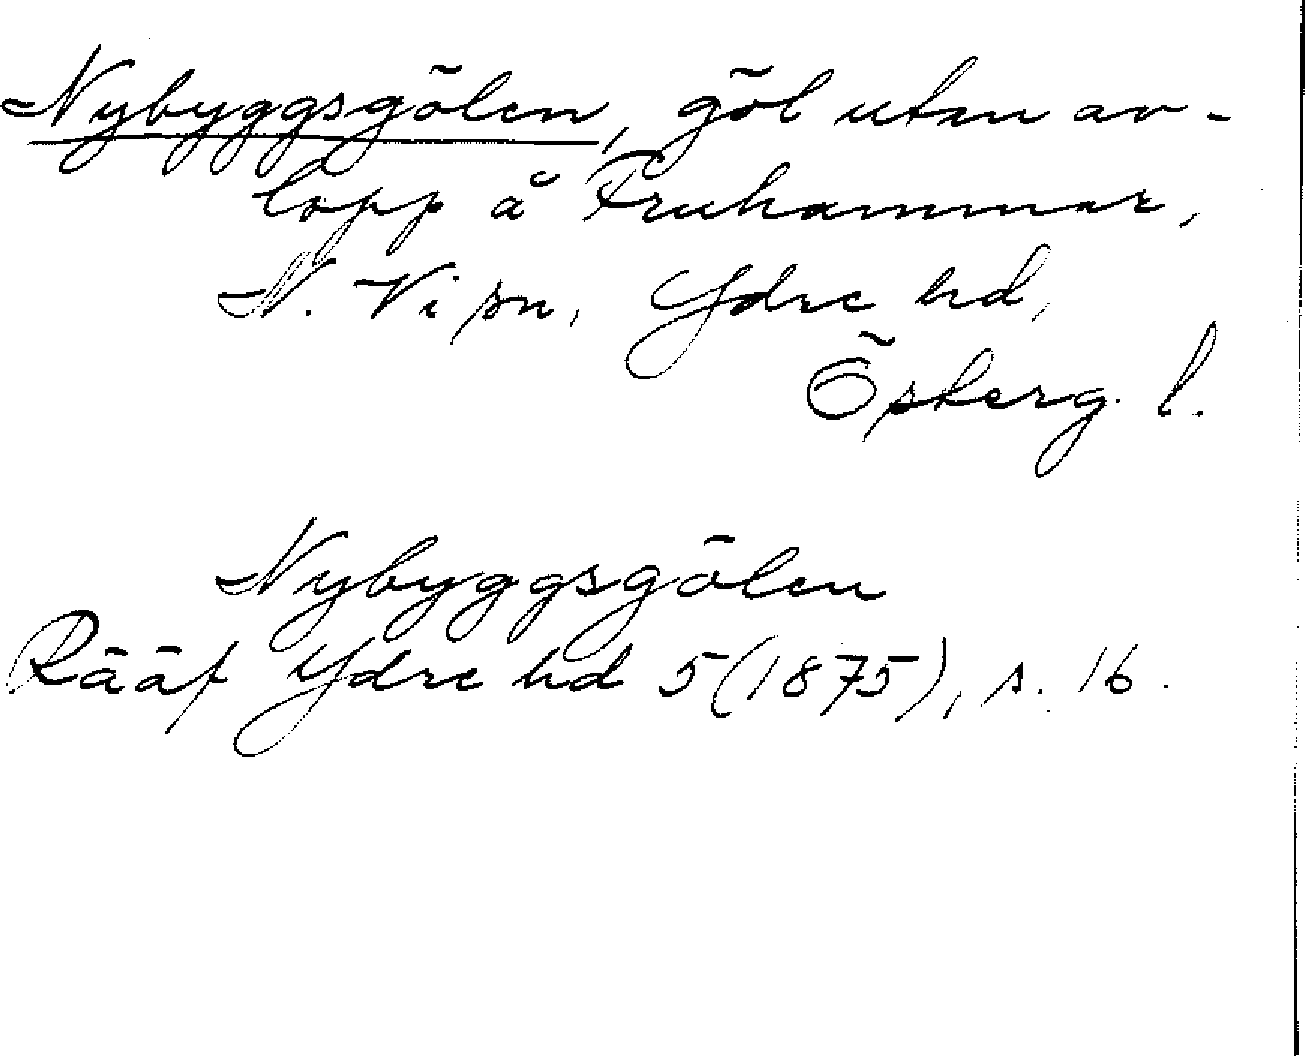 Nybyggsgölen, göl utan av-
lopp å Fruhammar,
N. Vi sn, Ydre hd,
Östberg. l.
Nybyggsgölen
Rääf Ydre hd 5 (1875), s. 16.